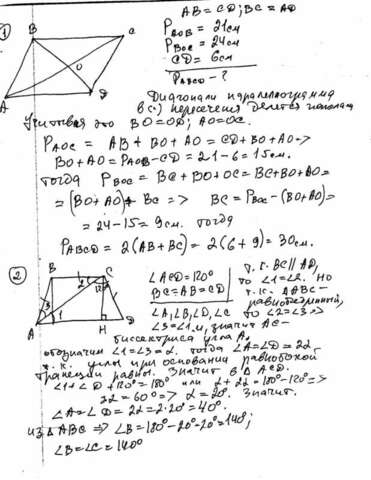 1
AB = CD; BC = AD
B
C
O
A
D
P AOB = 21см
P BOC = 24см
CD = 6см
P ABCD - ?
Диагонали параллелограмма
в (.) пересечения делятся пополам
Учитывая это BO=OD; AO=OC.
P AOC = AB + BO + AO = CD + BO + AO →
BO + AO = P AOB - CD = 21 - 6 = 15см.
тогда P BOC = BC + BO + OC = BC + BO + AO =
= (BO + AO) + BC => BC = P BOC - (BO + AO) =
= 24 - 15 = 9см. тогда
P ABCD = 2(AB + BC) = 2(6 + 9) = 30см.
2
B
C
A
H
D
∠ACD = 120°
BC = AB = CD
∠A, ∠B, ∠D, ∠C
т.к. BC || AD,
то ∠1 = ∠2. Но
т.к. ΔABC -
равнобедренный,
то ∠2 = ∠3 =>
∠3 = ∠1 и, значит AC -
биссектриса угла A.
обозначим ∠1 = ∠3 = α. тогда ∠A = ∠D = 2α
т.к. углы при основании равнобокой
трапеции равны. Значит в Δ ACD.
∠1 + ∠D + 120° = 180° или α + 2α = 180° - 120° =>
3α = 60° => α = 20°. Значит.
∠A = ∠D = 2α = 2·20° = 40°.
из Δ ABC => ∠B = 180° - 20° - 20° = 140°;
∠B = ∠C = 140°